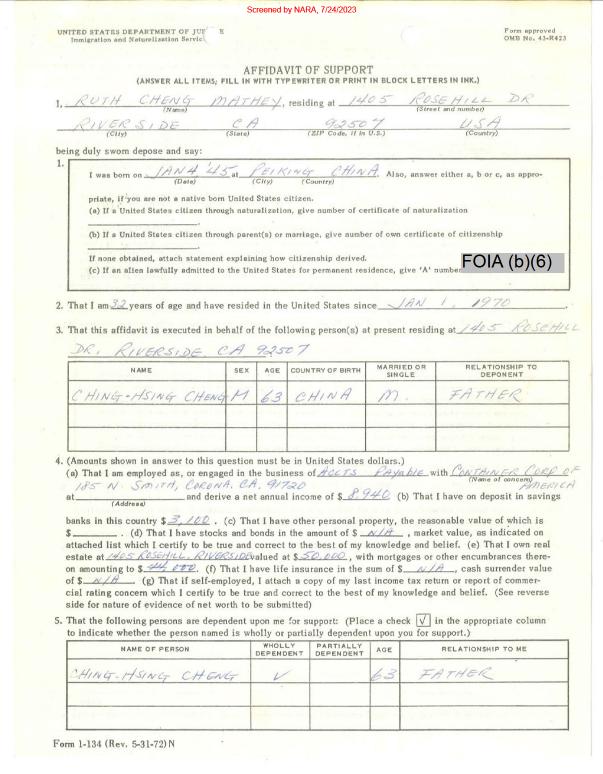 Screened by NARA, 7/24/2023
UNITED STATES DEPARTMENT OF JUS E Form approved
Immigration and Naturalization Servic OMB No. 43-R423
AFFIDAVIT OF SUPPORT
(ANSWER ALL ITEMS; FILL IN WITH TYPEWRITER OR PRINT IN BLOCK LETTERS IN INK.)
I, RUTH CHENG MATHEY, residing at 1405 ROSEHILL DR
(Name) (Street and number)
RIVERSIDE CA 92507 USA
(City) (State) (ZIP Code, if in U.S.) (Country)
being duly sworn depose and say:
1.
I was born on JAN 4 '45 at PEIKING CHINA. Also, answer either a, b or c, as appro-
(Date) (City) (Country)
priate, if you are not a native born United States citizen.
(a) If a United States citizen through naturalization, give number of certificate of naturalization
(b) If a United States citizen through parent(s) or marriage, give number of own certificate of citizenship
If none obtained, attach statement explaining how citizenship derived.
(c) If an alien lawfully admitted to the United States for permanent residence, give 'A' number FOIA (b)(6)
2. That I am 32 years of age and have resided in the United States since JAN 1, 1970.
3. That this affidavit is executed in behalf of the following person(s) at present residing at 1405 ROSEHILL
DR, RIVERSIDE CA 92507
NAME SEX AGE COUNTRY OF BIRTH MARRIED OR SINGLE RELATIONSHIP TO DEPONENT
CHING-HSING CHENG M 63 CHINA M. FATHER
4. (Amounts shown in answer to this question must be in United States dollars.)
(a) That I am employed as, or engaged in the business of ACCTS PAYABLE with CONTAINER CORP OF
(Name of concern) AMERICA
185 N. SMITH, CORONA, CA. 91720
at and derive a net annual income of $ 8,940 (b) That I have on deposit in savings
(Address)
banks in this country $ 3,100. (c) That I have other personal property, the reasonable value of which is
$ . (d) That I have stocks and bonds in the amount of $ N/A, market value, as indicated on
attached list which I certify to be true and correct to the best of my knowledge and belief. (e) That I own real
estate at 1405 ROSEHILL, RIVERSIDE valued at $ 50,000, with mortgages or other encumbrances there-
on amounting to $ 44,000. (f) That I have life insurance in the sum of $ N/A, cash surrender value
of $ N/A. (g) That if self-employed, I attach a copy of my last income tax return or report of commer-
cial rating concern which I certify to be true and correct to the best of my knowledge and belief. (See reverse
side for nature of evidence of net worth to be submitted)
5. That the following persons are dependent upon me for support: (Place a check √ in the appropriate column
to indicate whether the person named is wholly or partially dependent upon you for support.)
NAME OF PERSON WHOLLY DEPENDENT PARTIALLY DEPENDENT AGE RELATIONSHIP TO ME
CHING-HSING CHENG √ 63 FATHER
Form I-134 (Rev. 5-31-72) N